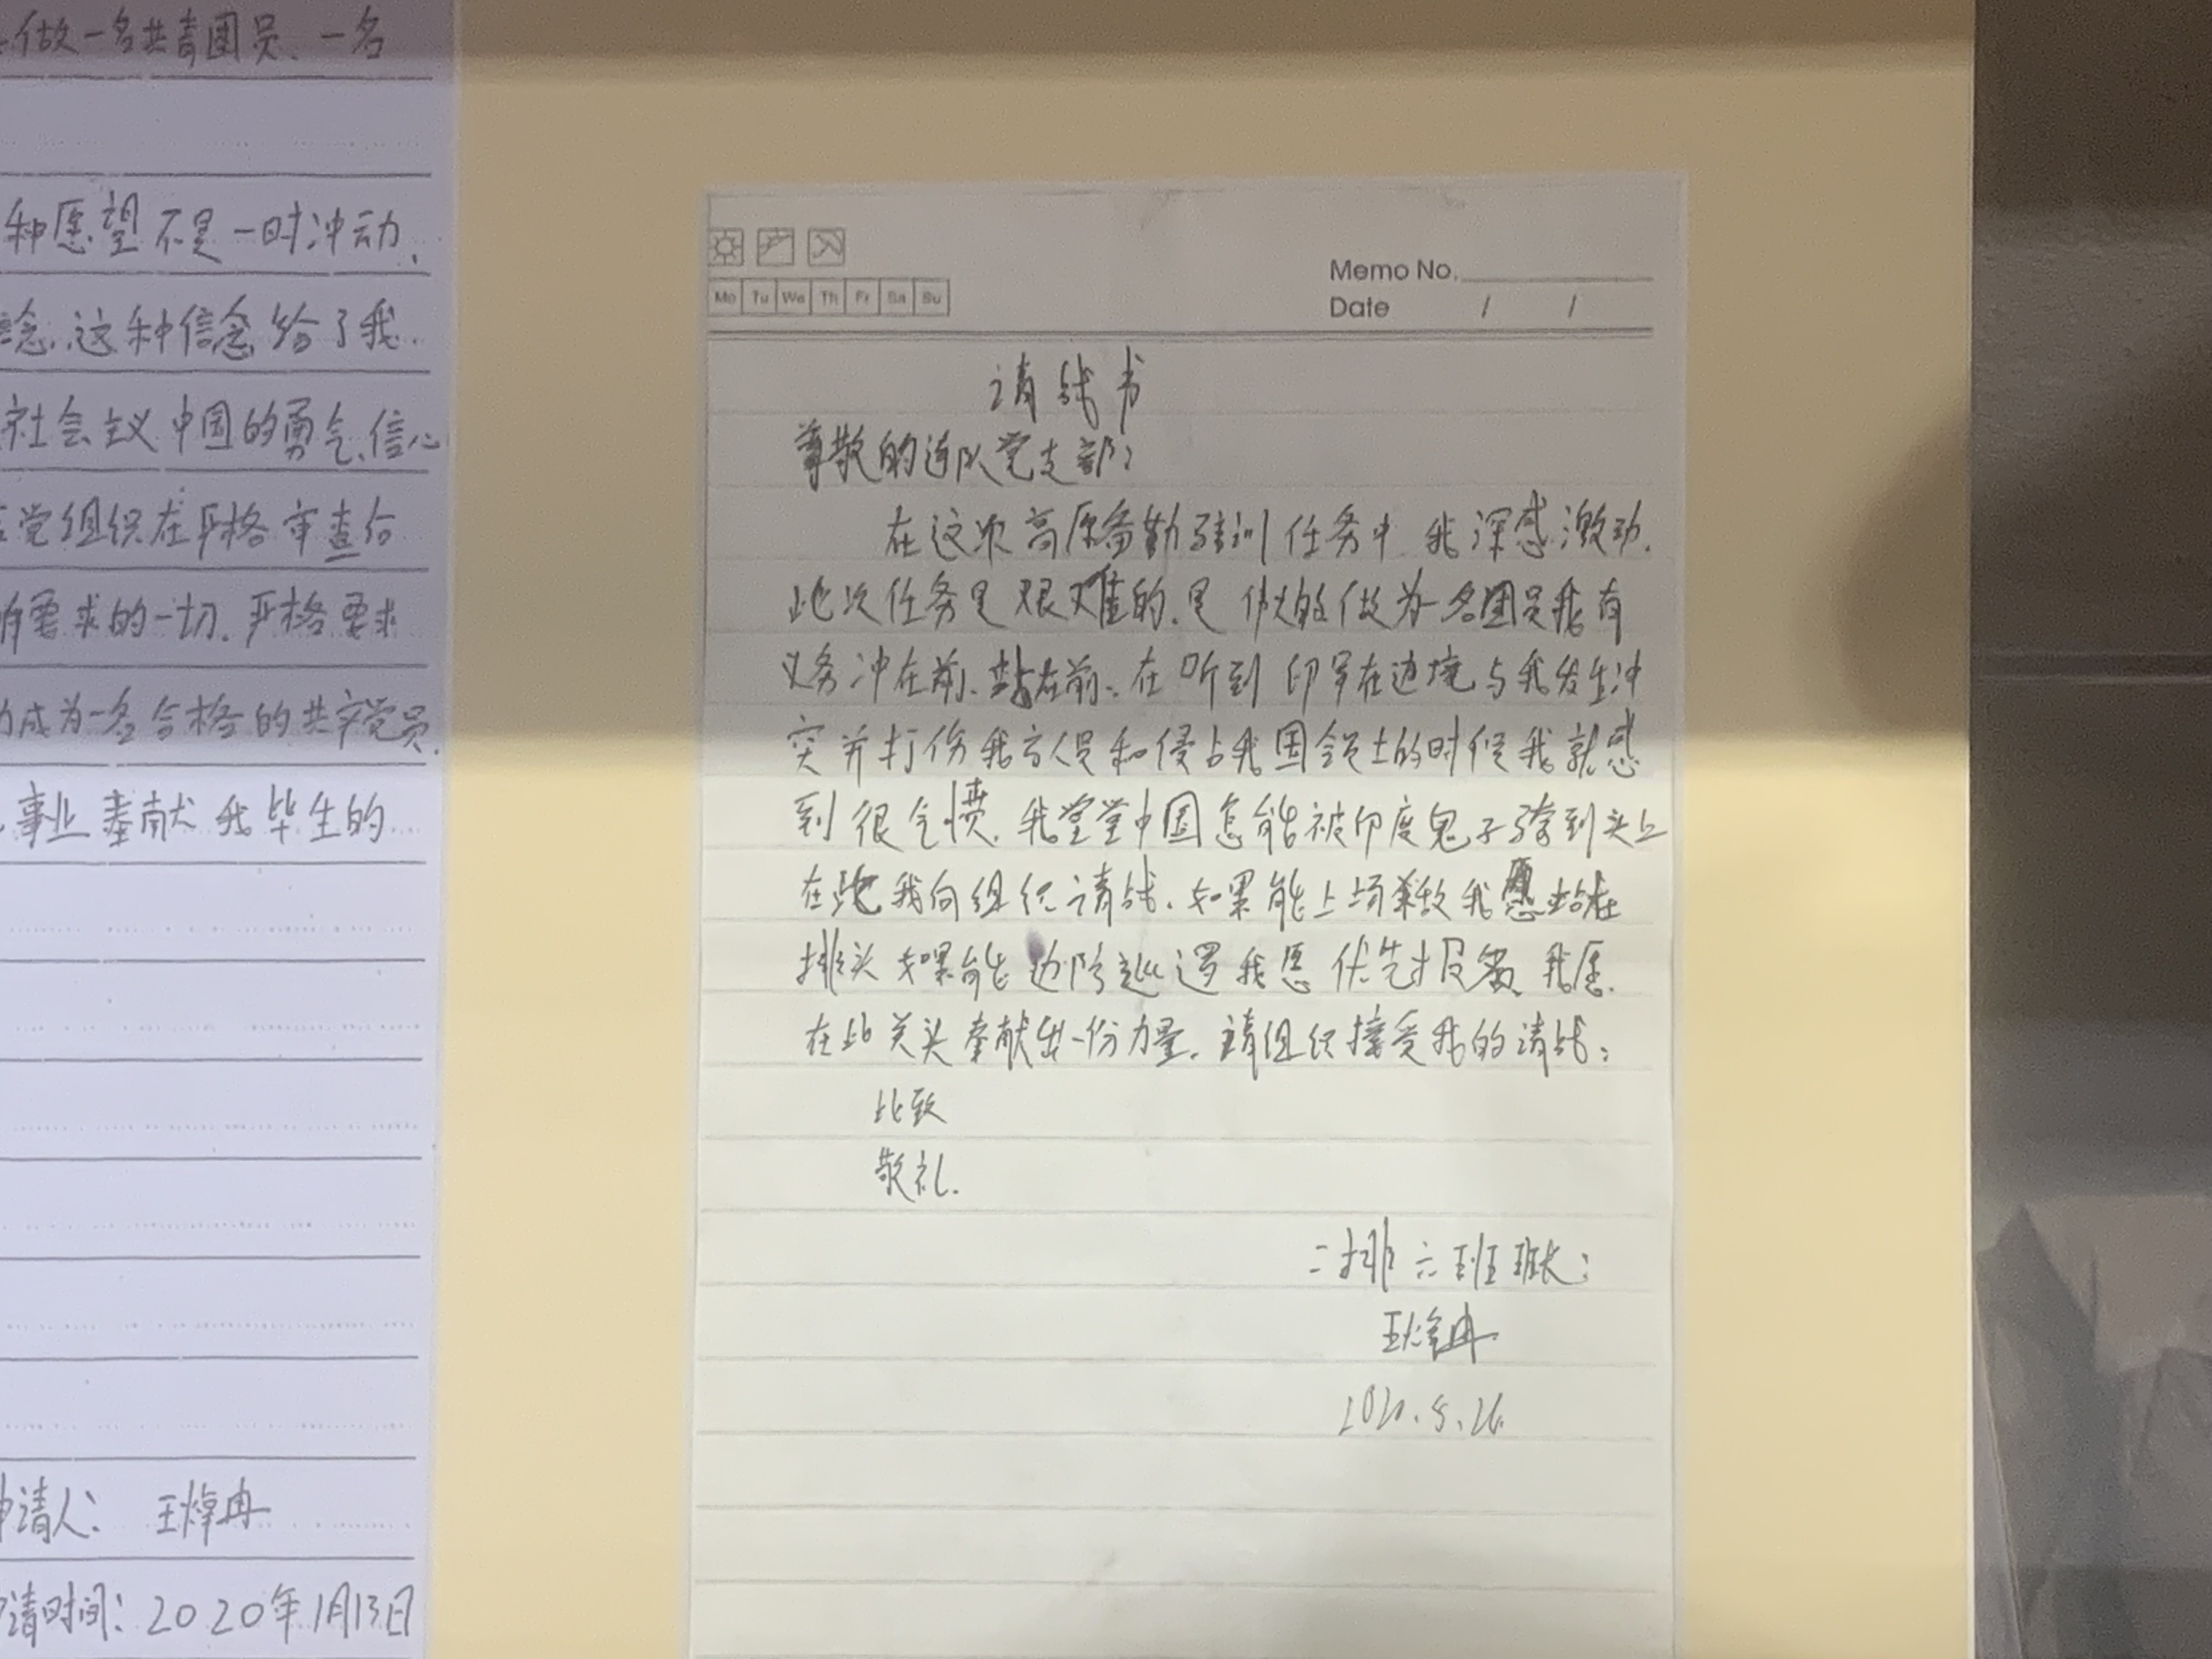 做一名共青团员、一名
种愿望不是一时冲动、
念.这种信念给了我.
社会主义中国的勇气、信心
党组织在严格审查后
要求的一切.严格要求
成为一名合格的共产党员.
事业奉献我毕生的
申请人: 王焯冉
请时间: 2020年1月13日
Memo No.
Date / /
Mo Tu We Th Fr Sa Su
请战书
尊敬的连队党支部:
在这次高原备勤驻训任务中我深感激动.
此次任务是艰难的.是 做为一名团员我有
义务冲在前、站在前.在听到印军在边境与我发生冲
突并打伤我方人员和侵占我国领土的时候我就感
到很气愤.我堂堂中国怎能被印度鬼子骑到头上
在此我向组织请战.如果能上场杀敌我愿站在
排头如果能边防巡逻我愿优先报名.我愿
在此关头奉献出一份力量.请组织接受我的请战:
此致
敬礼.
二排六班班长:
王焯冉
2020.5.26